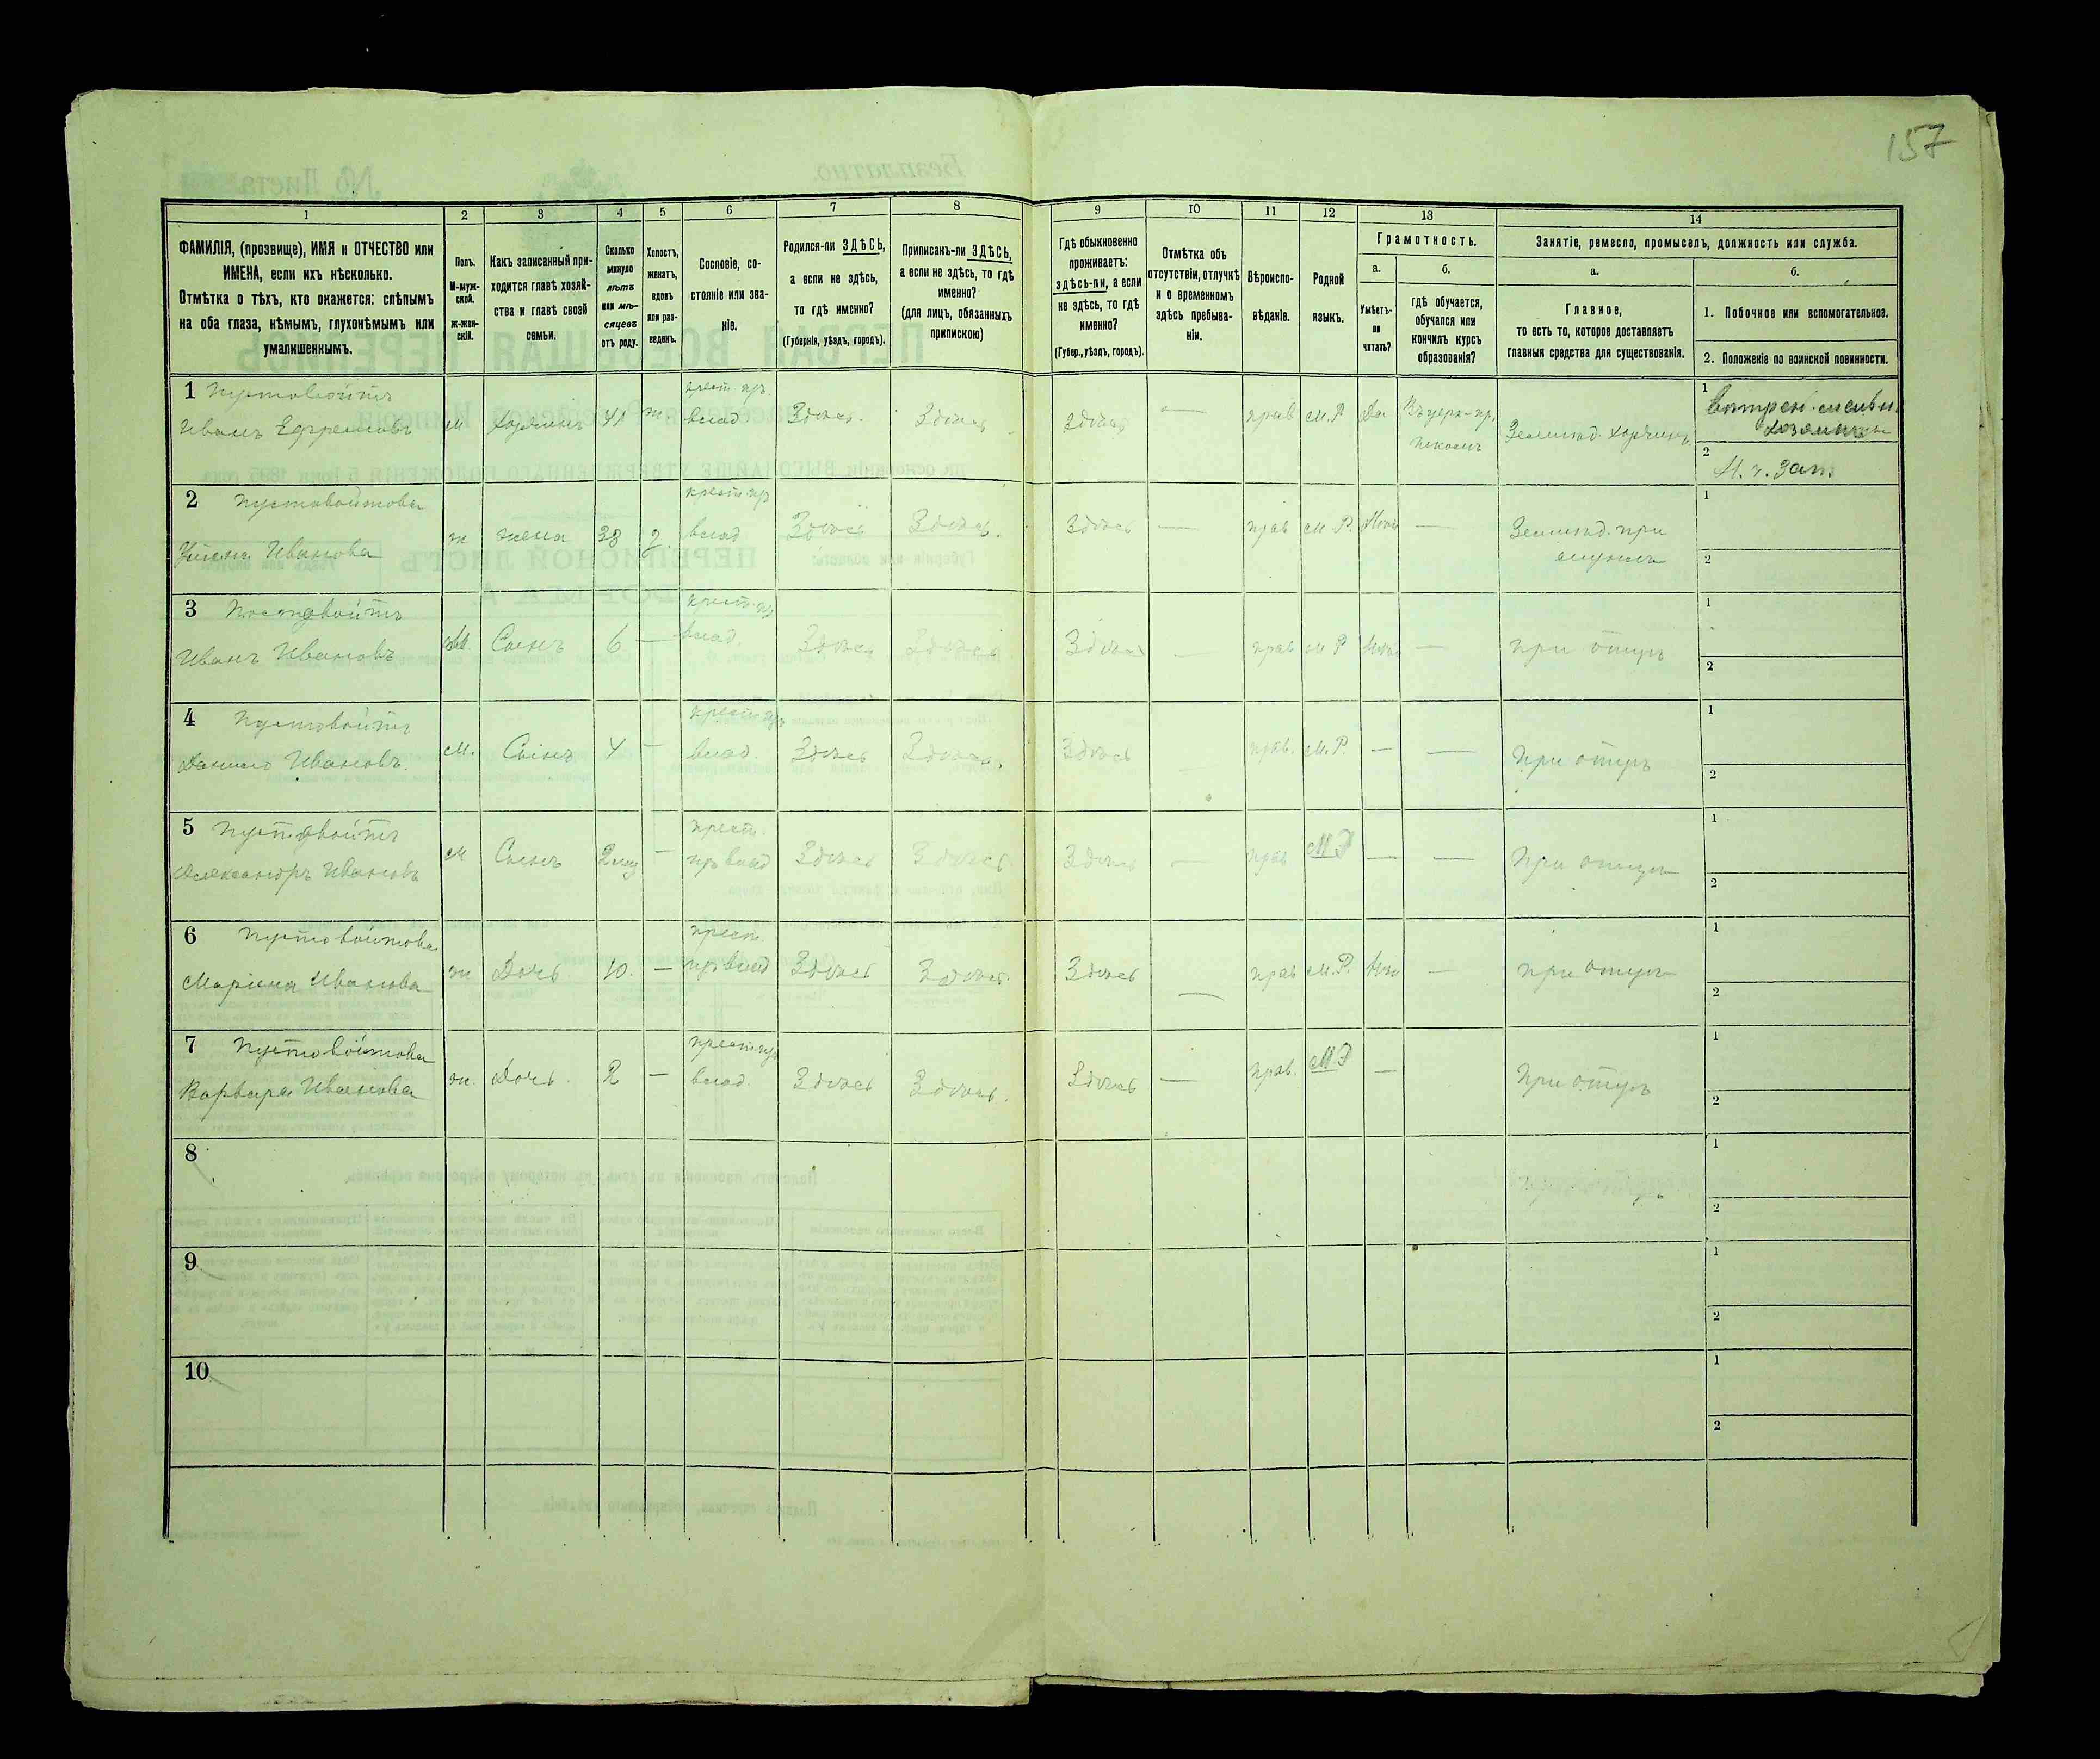 157
1
2
3
4
5
6
7
8
9
10
11
12
13
14
ФАМИЛІЯ, (прозвище), ИМЯ и ОТЧЕСТВО или
ИМЕНА, если ихъ нѣсколько.
Отмѣтка о тѣхъ, кто окажется: слѣпымъ
на оба глаза, нѣмымъ, глухонѣмымъ или
умалишеннымъ.
Полъ.
М-муж-
ской.
ж-жен-
скій.
Какъ записанный при-
ходится главѣ хозяй-
ства и главѣ своей
семьи.
Сколько
минуло
лѣтъ
или мѣ-
сяцевъ
отъ роду.
Холостъ,
женатъ,
вдовъ
или раз-
веденъ.
Сословіе, со-
стояніе или зва-
ніе.
Родился-ли ЗДѢСЬ,
а если не здѣсь,
то гдѣ именно?
(Губернія, уѣздъ, городъ).
Приписанъ-ли ЗДѢСЬ,
а если не здѣсь, то гдѣ
именно?
(для лицъ, обязанныхъ
припискою)
Гдѣ обыкновенно
проживаетъ:
здѣсь-ли, а если
не здѣсь, то гдѣ
именно?
(Губер., уѣздъ, городъ).
Отмѣтка объ
отсутствіи, отлучкѣ
и о временномъ
здѣсь пребыва-
ніи.
Вѣроиспо-
вѣданіе.
Родной
языкъ.
Грамотность.
а.
б.
Умѣетъ-
ли
читать?
гдѣ обучается,
обучался или
кончилъ курсъ
образованія?
Занятіе, ремесло, промыселъ, должность или служба.
а.
б.
Главное,
то есть то, которое доставляетъ
главныя средства для существованія.
1. Побочное или вспомогательное.
2. Положеніе по воинской повинности.
1 Пустовойтъ
Иванъ Ефремовъ
м
Хозяинъ
41
ж
крест. пр.
влад
Здѣсь.
Здѣсь
Здѣсь
—
прав
М.Р
Да
Земледѣл. хозяинъ
1
2
2 Пустовойтова
Ивановa
ж
жена
38
крест. пр
влад
Здѣсь
Здѣсь.
Здѣсь
—
прав
М.Р.
—
Земледѣл. при
мужѣ
1
2
3 Постовойтъ
Иванъ Ивановъ
М.
Сынъ
6
—
крест. пр
влад.
Здѣсь
Здѣсь
Здѣсь
—
прав
М Р
—
при отцѣ
1
2
4 Пустовойтъ
Данило Ивановъ.
М.
Сынъ
4
—
крест. пр
влад.
Здѣсь
Здѣсь.
Здѣсь
прав.
М.Р.
—
—
При отцѣ
1
2
5 Пустовойтъ
Александръ Ивановъ
М
Сынъ
2 мѣс
—
крест.
пр влад
Здѣсь
Здѣсь
Здѣсь
—
прав
М Р
—
—
При отцѣ
1
2
6 Пустовойтова
Марина Иванова
ж
Дочь
10.
—
крест.
пр влад
Здѣсь
Здѣсь.
Здѣсь
—
прав
М.Р.
—
при отцѣ
1
2
7 Пустовойтова
Варвара Иванова
ж.
Дочь.
2
—
крест. пр
влад.
Здѣсь
Здѣсь.
Здѣсь
—
прав.
М Р
—
При отцѣ
1
2
8
1
2
9
1
2
10
1
2